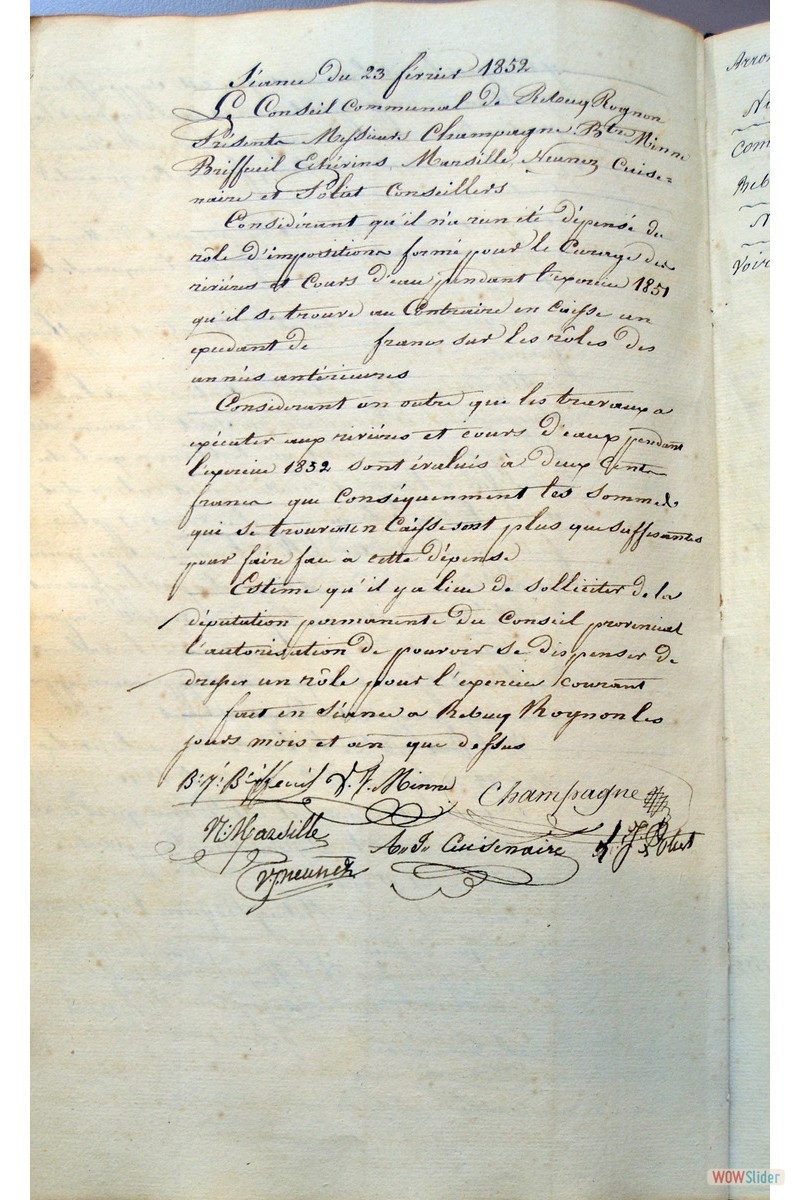 Séance du 23 février 1852
Le Conseil Communal de Rebecq Rognon
Présents Messieurs Champagne Btre Minne
Briffeuil Echévins, Marsille, Neunez Cuise=
naire et Poliat Conseillers
Considérant qu'il n'a rien été dépensé du
rôle d'impositions formé pour le Curage des
rivières et Cours d'eau pendant l'exercice 1851
qu'il se trouve au Contraire en Caisse un
excédant de francs sur les rôles des
années antérieures
Considerant en outre que les travaux a
exécuter aux rivières et cours d'eaux pendant
l'exercice 1852 sont évalués à deux Cents
francs que Conséquemment les sommes
qui se trouvent en Caisse sont plus que suffisantes
pour faire face à cette dépense
Estime qu'il y a lieu de solliciter de la
députation permanente du Conseil provincial
l'autorisation de pouvoir se dispenser de
dresser un rôle pour l'exercice courant
fait en Séance a Rebecq Rognon les
jours mois et an que dessus
B: J: Briffeuil V. J. Minne Champagne
N: Marsille A. J. Cuisenaire
V. J. neunez
Arron
Ni
Com
Reb
N
Voir
WOWSlider